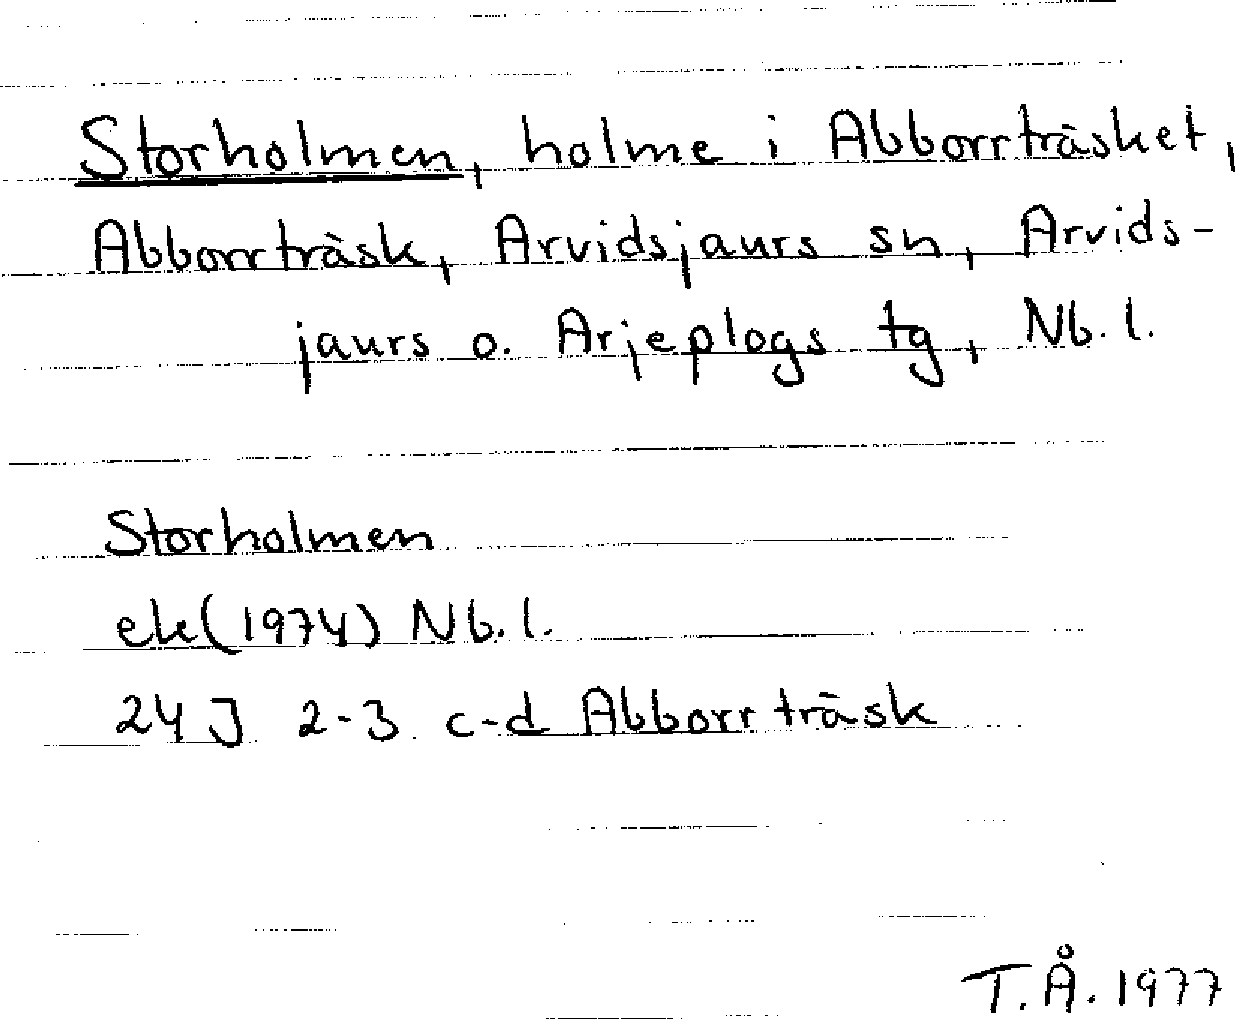 Storholmen, holme i Abborrträsket,
Abborrträsk, Arvidsjaurs sn, Arvids-
jaurs o. Arjeplogs tg, Nb. l.
Storholmen
ek(1974) Nb. l.
24 J 2-3 c-d Abborrträsk
T.Å. 1977